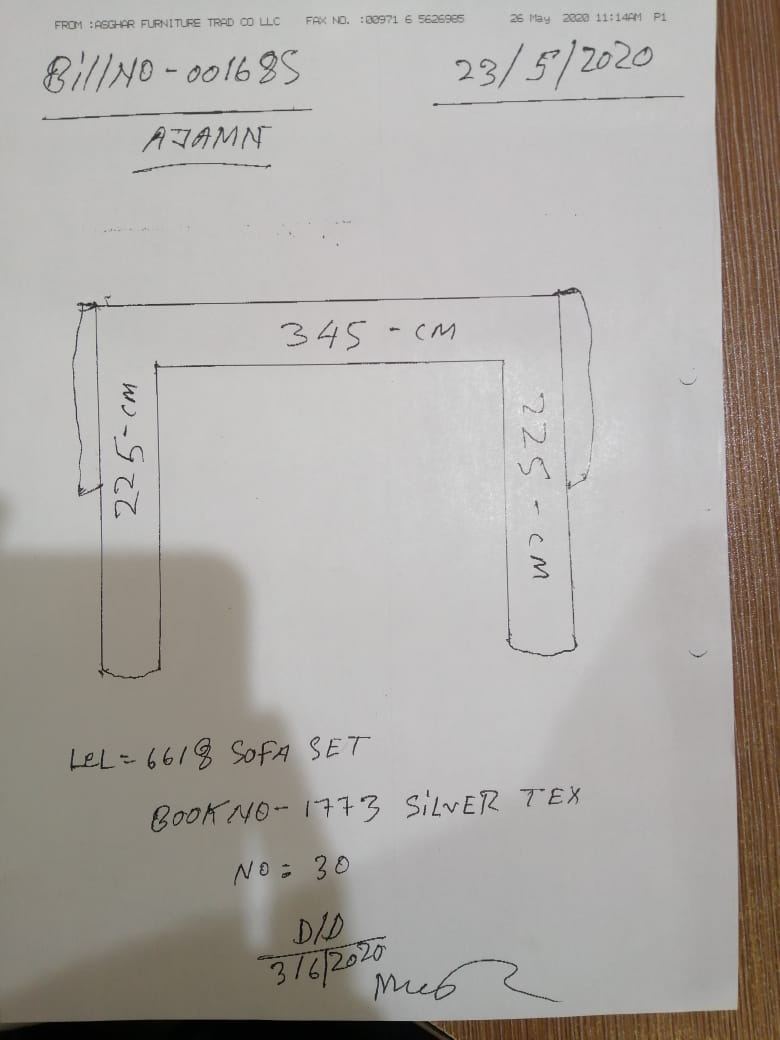 FROM :ASGHAR FURNITURE TRAD CO LLC FAX NO. :00971 6 5626965 26 May 2020 11:14AM P1
Bill NO - 001685 23/5/2020
AJAMN
345 - CM
225 - CM
225 - CM
LeL = 6618 SOFA SET
BOOK NO - 1773 SiLVER TEX
NO = 30
D/D
3/6/2020